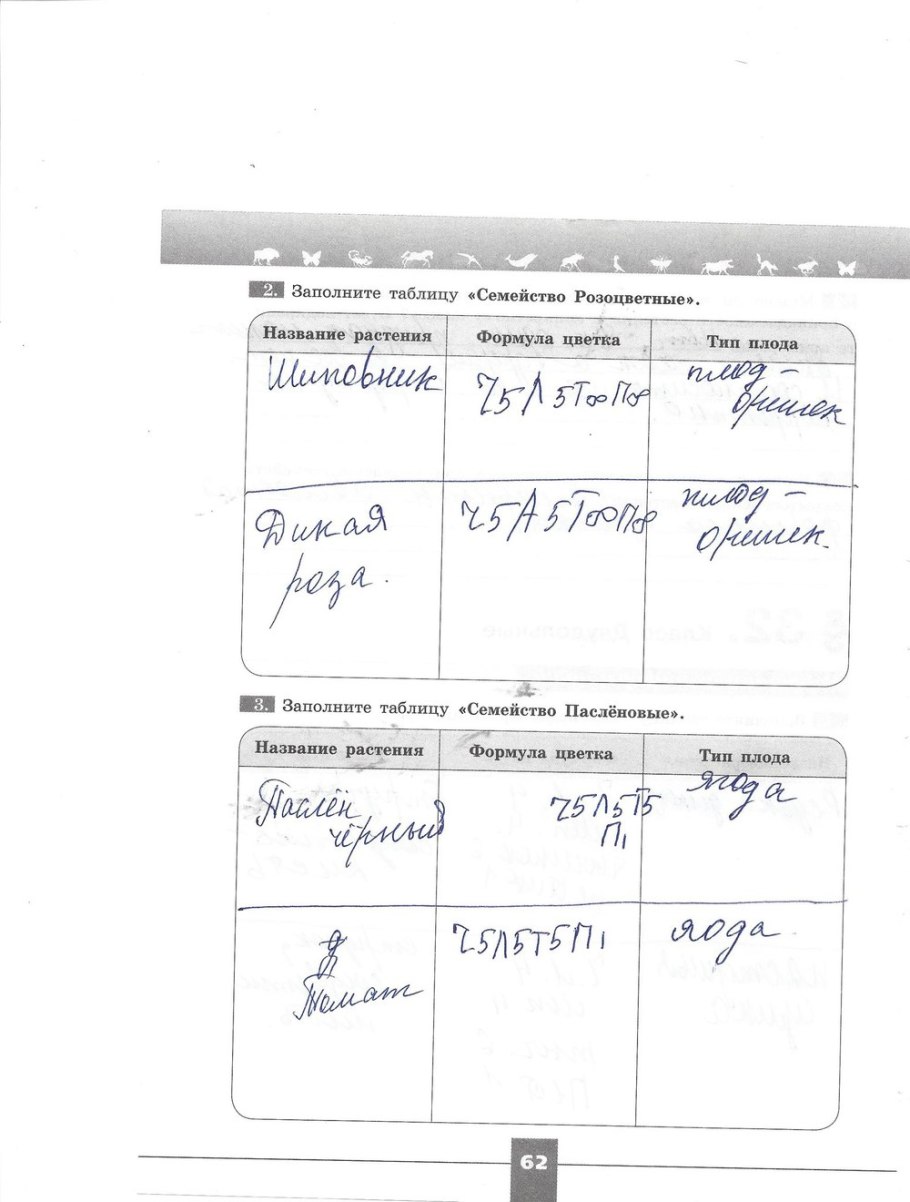 2. Заполните таблицу «Семейство Розоцветные».
Название растения Формула цветка Тип плода
Шиповник Ч5Л5Т∞П∞ плод –
орешек
Дикая Ч5Л5Т∞П∞ плод –
роза. орешек.
3. Заполните таблицу «Семейство Паслёновые».
Название растения Формула цветка Тип плода
Паслён Ч5Л5Т5 ягода
чёрный П1
Томат Ч5Л5Т5П1 ягода
62